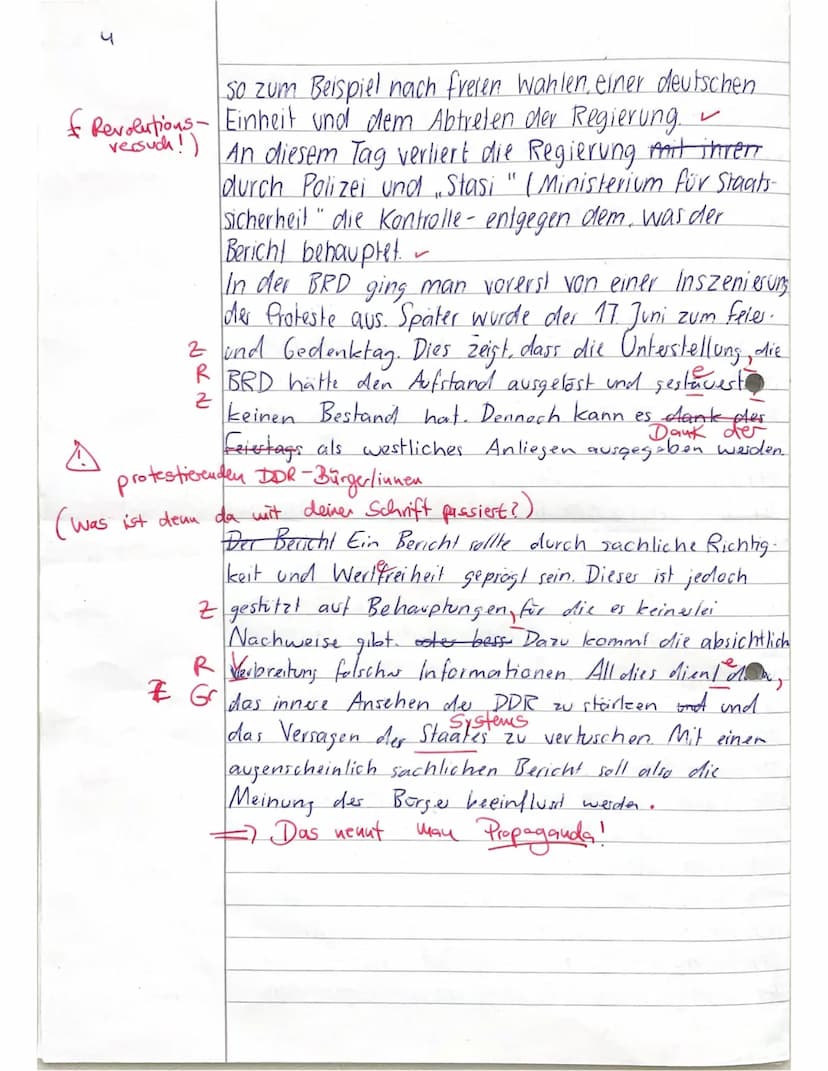 4
so zum Beispiel nach freien Wahlen, einer deutschen
Einheit und dem Abtreten der Regierung. ✓
(Revolutions-
versuch!)
An diesem Tag verliert die Regierung mit ihren
durch Polizei und „Stasi" (Ministerium für Staats-
sicherheit" die Kontrolle - entgegen dem, was der
Bericht behauptet. ✓
In der BRD ging man vorerst von einer Inszenierung
der Proteste aus. Später wurde der 17. Juni zum Feier-
Z und Gedenktag. Dies zeigt, dass die Unterstellung, die
R BRD hätte den Aufstand ausgelöst und gesteuert,
Z keinen Bestand hat. Dennoch kann es dank des
Dank der
Feiertags als westliches Anliegen ausgegeben werden.
protestierenden DDR-Bürger/innen
(Was ist denn da mit deiner Schrift passiert?)
Der Bericht Ein Bericht sollte durch sachliche Richtig-
keit und Wertefreiheit geprägt sein. Dieses ist jedoch
Z gestützt auf Behauptungen, für die es keinerlei
Nachweise gibt. oder bess Dazu kommt die absichtlich
R Verbreitung falscher Informationen. All dies dient
Z Gr das innere Ansehen der DDR zu stärken und und
Systems
das Versagen der Staates zu vertuschen. Mit einem
augenscheinlich sachlichen Bericht soll also die
Meinung des Bürger beeinflusst werden.
=> Das nennt man Propaganda!